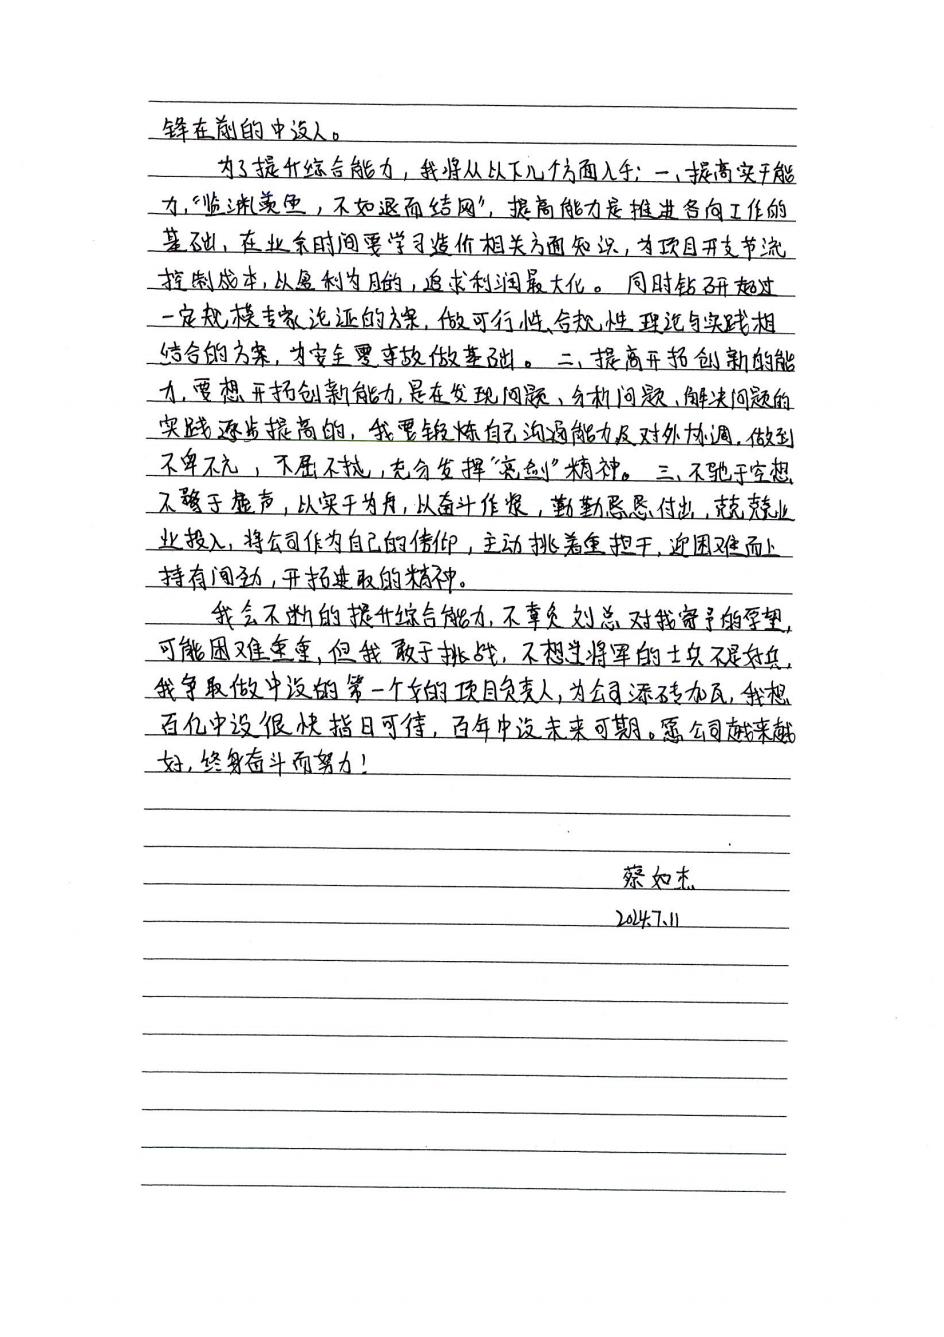 锋在前的中设人。
为了提升综合能力，我将从以下几个方面入手：一、提高实干能
力，“临渊羡鱼，不如退而结网”，提高能力是推进各向工作的
基础，在业余时间要学习造价相关方面知识，为项目开支节流
控制成本，以盈利为目的，追求利润最大化。同时钻研超过
一定规模专家论证的方案，做可行性、合规性理论与实践相
结合的方案，为安全零事故做基础。二、提高开拓创新的能
力，要想开拓创新能力，是在发现问题、分析问题、解决问题的
实践逐步提高的，我要锻炼自己沟通能力及对外协调，做到
不卑不亢，不屈不挠，充分发挥“亮剑”精神。三、不驰于空想
不骛于虚声，以实干为舟，以奋斗作桨，勤勤恳恳付出，兢兢业
业投入，将公司作为自己的信仰，主动挑着重担干，迎困难而上
持有闯劲，开拓进取的精神。
我会不断的提升综合能力，不辜负刘总对我寄予的厚望，
可能困难重重，但我敢于挑战，不想当将军的士兵不是好兵，
我争取做中设的第一个女的项目负责人，为公司添砖加瓦，我想
百亿中设很快指日可待，百年中设未来可期。愿公司越来越
好，终身奋斗而努力！
蔡如杰
2024.7.11